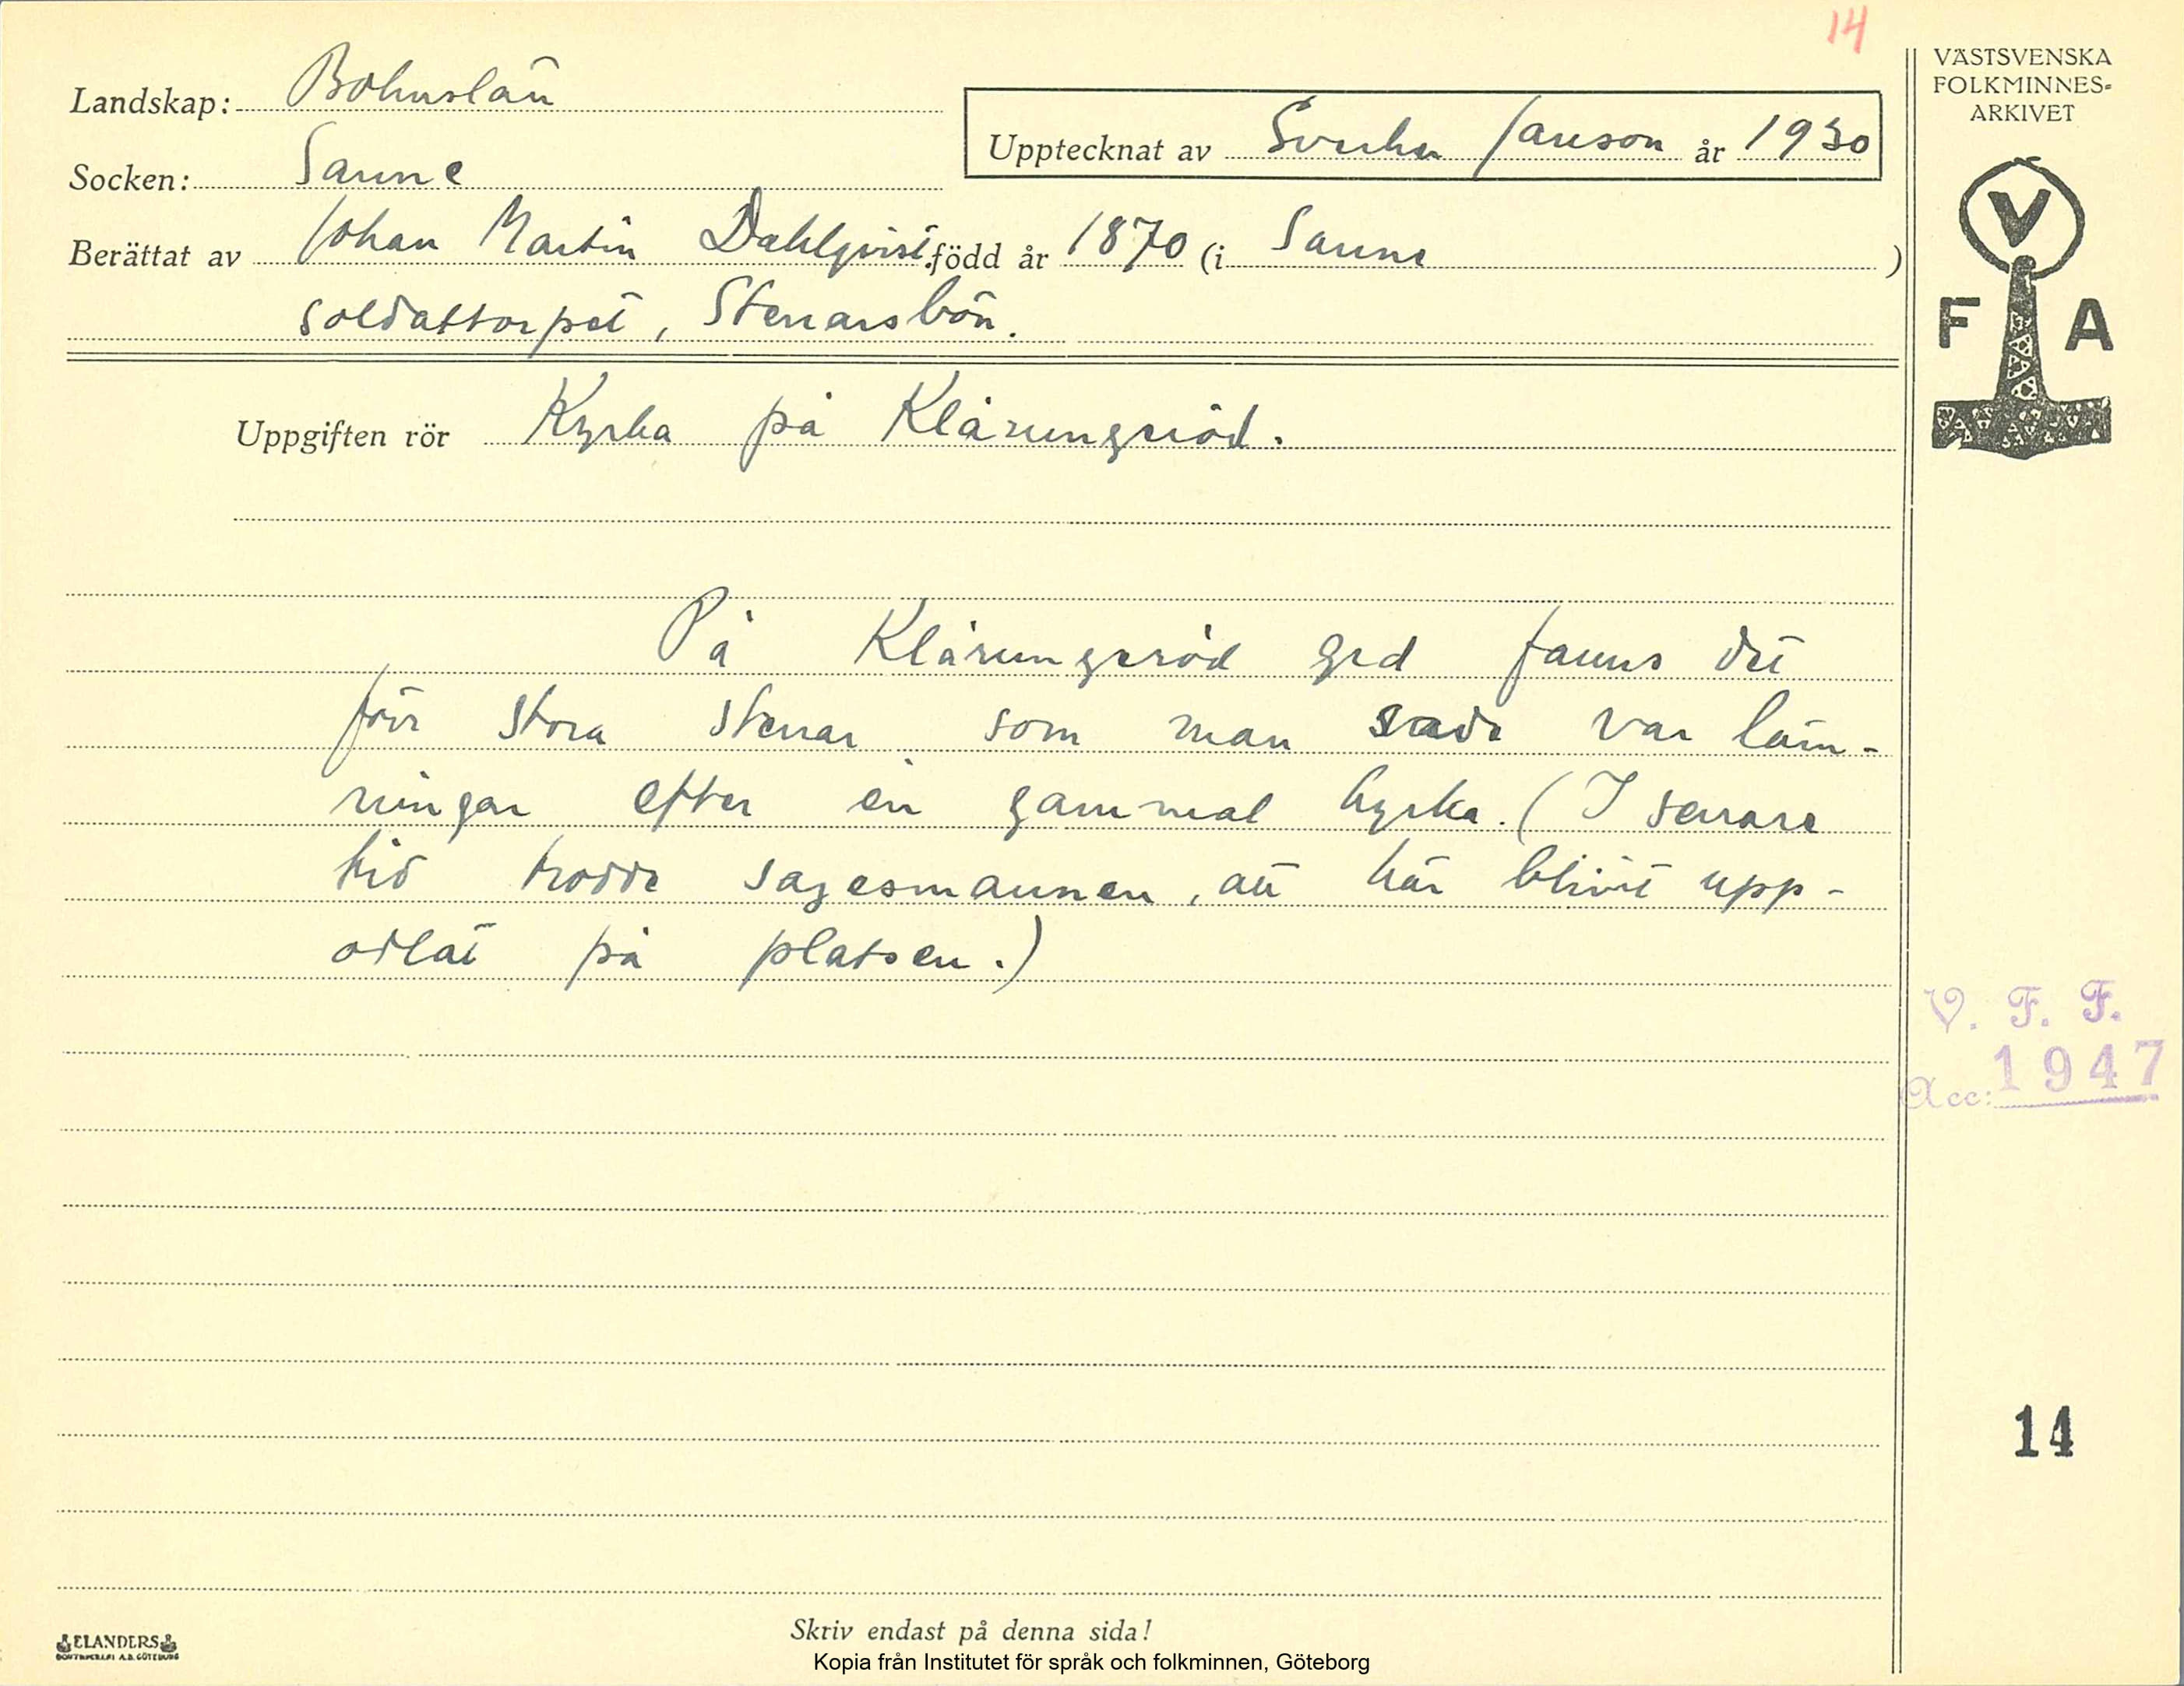 14
Landskap: Bohuslän
VÄSTSVENSKA
FOLKMINNES-
ARKIVET
Upptecknat av Sverker Janson år 1930
Socken: Sanne
Berättat av Johan Martin Dahlqvist född år 1870 (i Sanne )
soldattorpet, Stenarsbön.
V
F A
Uppgiften rör Kyrka på Klåzungeröd.
På Klåzungeröd grd fanns det
förr stora stenar som man sade var läm-
ningar efter en gammal kyrka. (I senare
tid trodde sagesmannen, att här blivit upp-
odlat på platsen.)
V. F. F.
Acc: 1947
14
Skriv endast på denna sida!
ELANDERS
Kopia från Institutet för språk och folkminnen, Göteborg